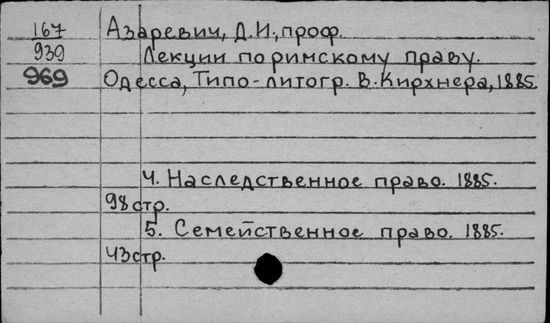 167 Азаревич, Д.И., проф.
939 Лекции по римскому праву.
969 Одесса, Типо-литогр. В. Кирхнера, 1885
4. Наследственное право. 1885.
98 стр.
5. Семейственное право. 1885.
43 стр.